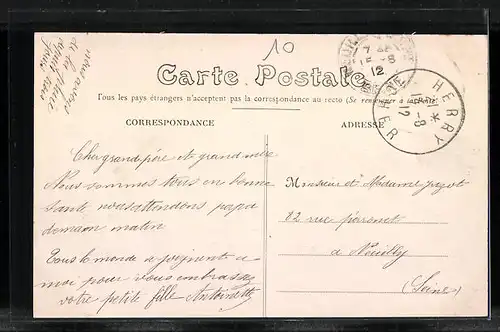 nous avons
de la pluie
10
Carte Postale
Tous les pays étrangers n'acceptent pas la correspondance au recto (Se renseigner à la Poste)
CORRESPONDANCE
ADRESSE
HERRY
CHER
15-8
12
12
Cher grand père et grand mère
Nous sommes tous en bonne
santé nous attendons papa
demain matin
Tous le monde se joignent a
moi pour vous embrasser
votre petite fille Antoinette
Monsieur et Madame
82 rue perronet
a Neuilly
(Seine)